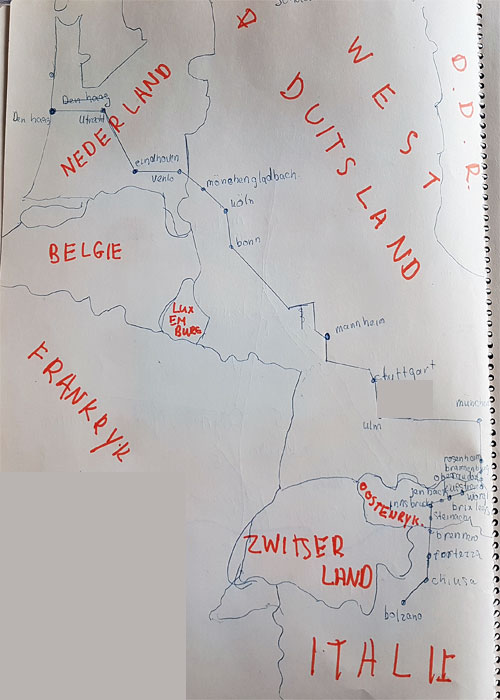 WEST
D.D.R.
DUITSLAND
Den haag
Den haag
Utrecht
NEDERLAND
eindhoven
venlo
mönchengladbach
köln
bonn
BELGIE
LUX
EM
BURG
mannheim
FRANKRYK
stuttgart
ulm
rosenheim
kufstein
jenbach
wörgl
innsbruck
OOSTENRYK
steinach
brennero
fortezza
chiusa
bolzano
ZWITSER
LAND
ITALIE